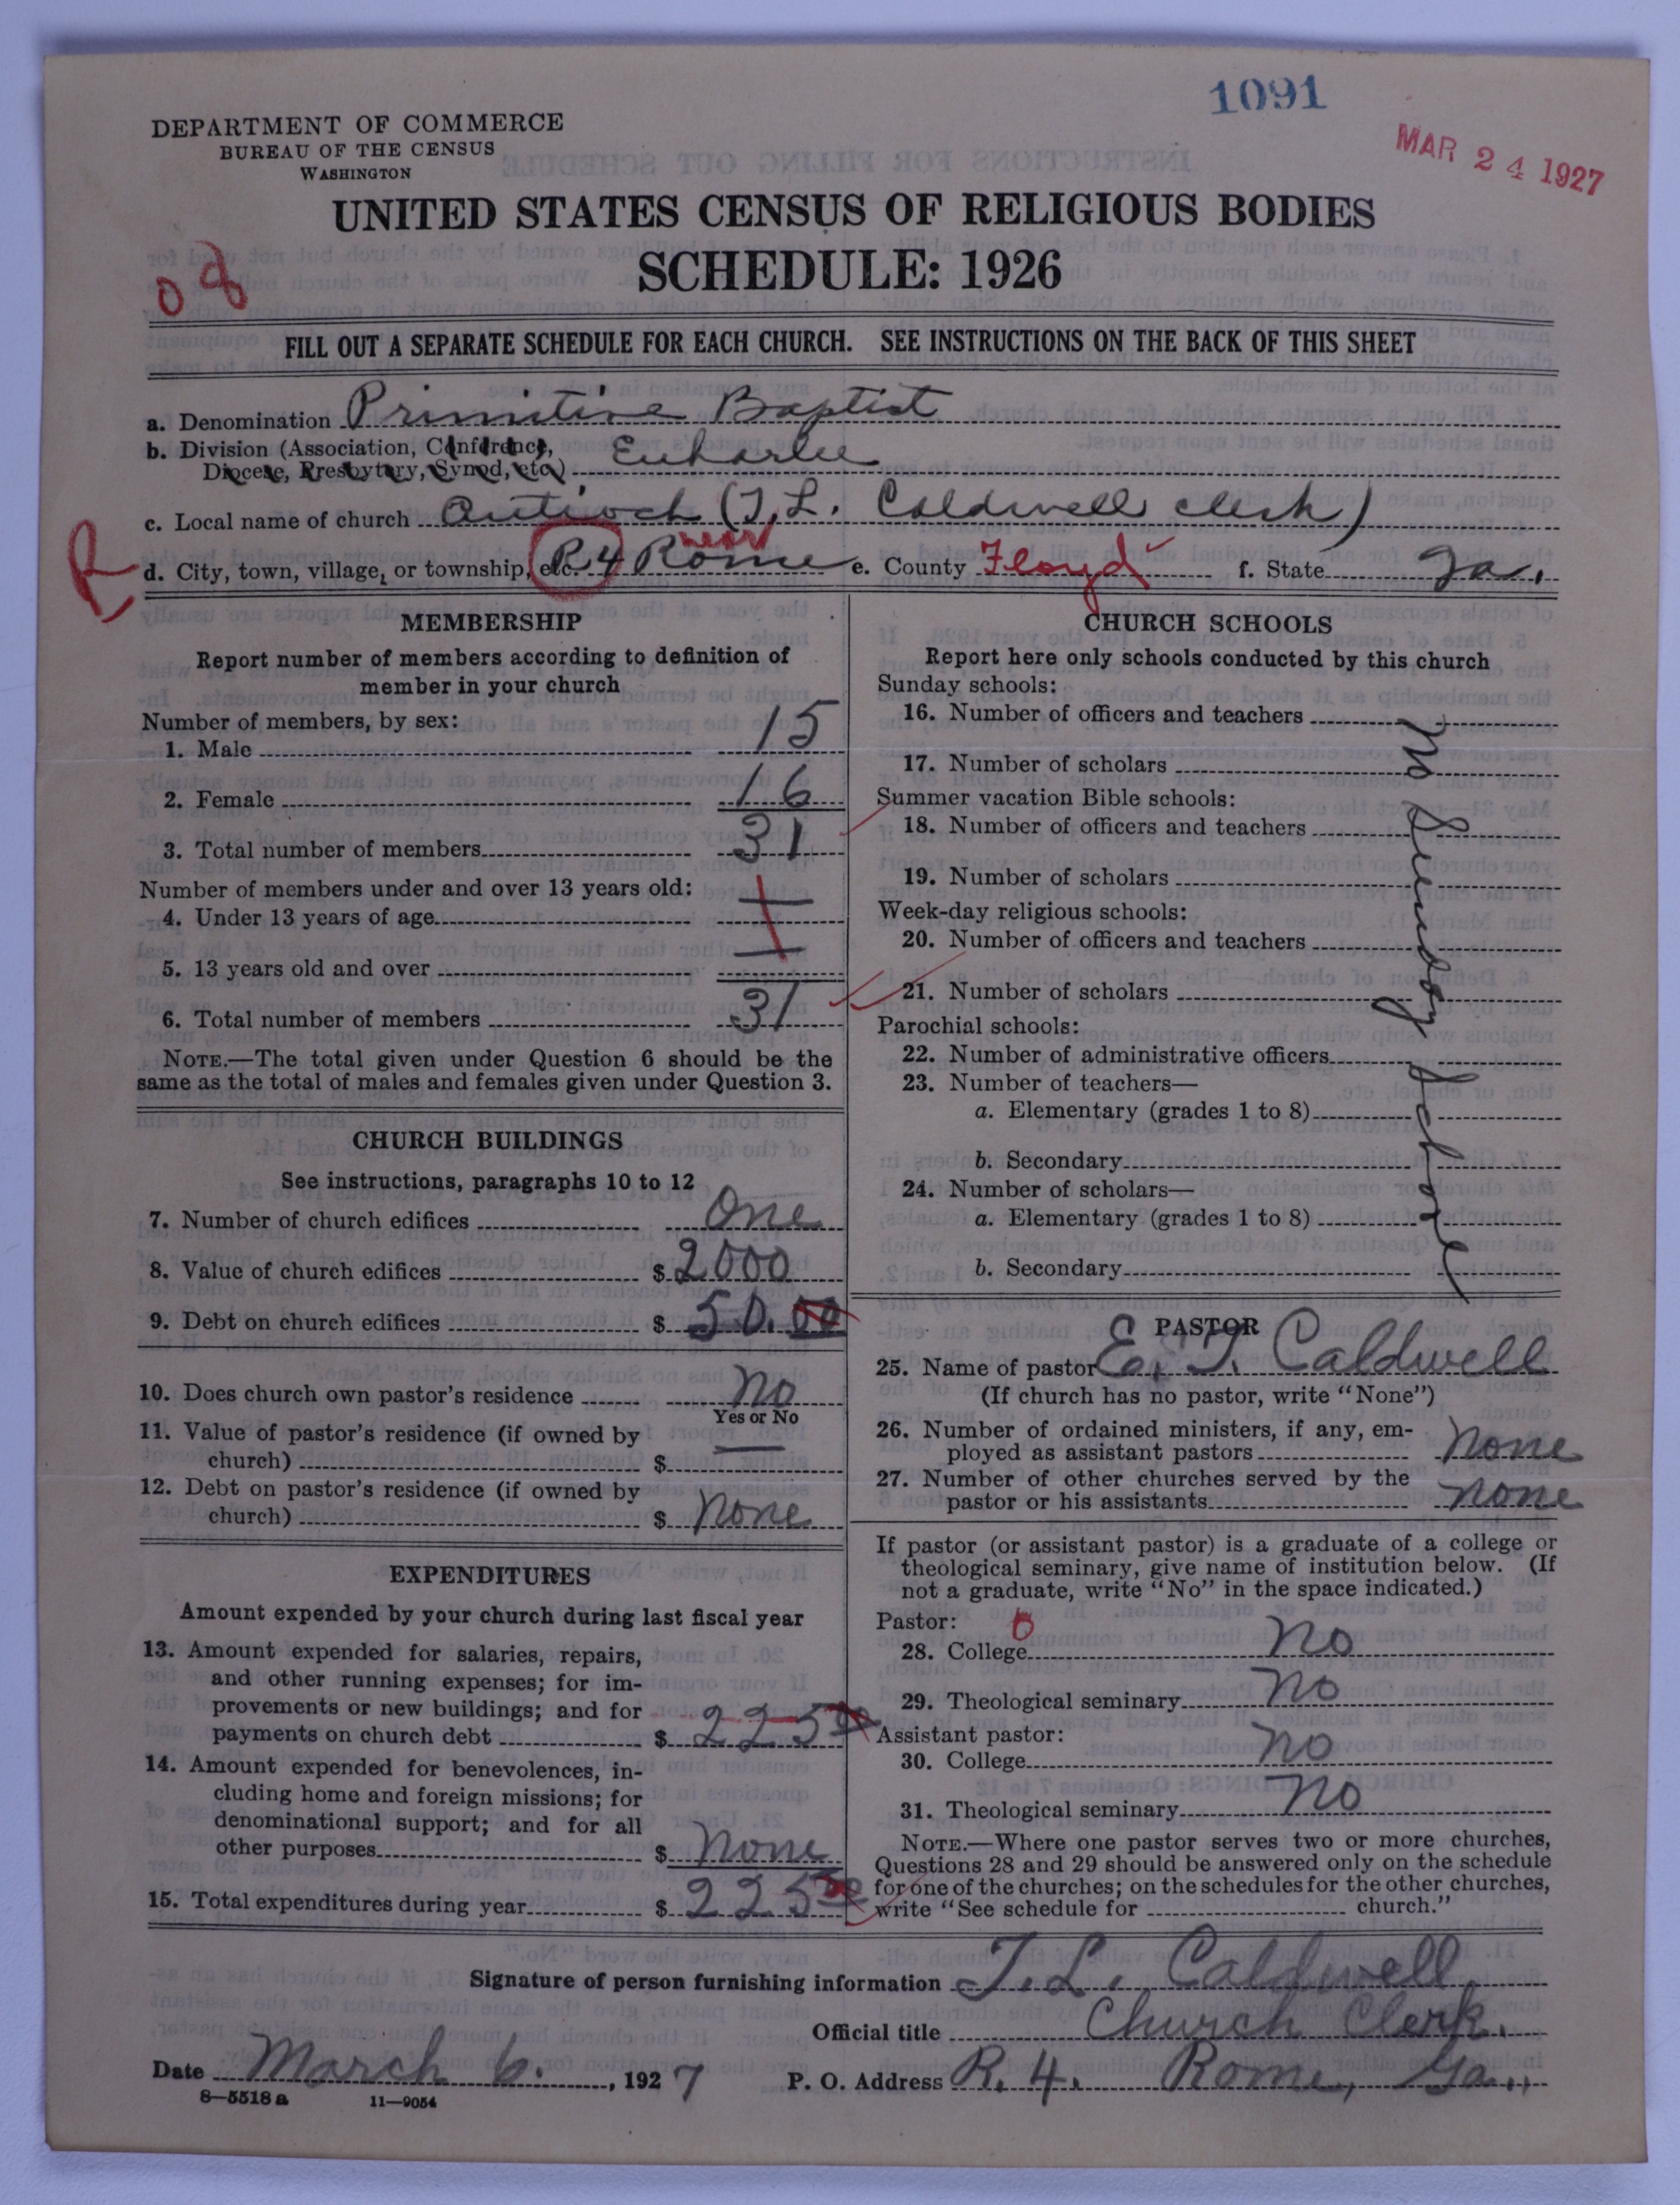 1091
MAR 24 1927
DEPARTMENT OF COMMERCE
BUREAU OF THE CENSUS
WASHINGTON
UNITED STATES CENSUS OF RELIGIOUS BODIES
SCHEDULE: 1926
08
FILL OUT A SEPARATE SCHEDULE FOR EACH CHURCH. SEE INSTRUCTIONS ON THE BACK OF THIS SHEET
a. Denomination Primitive Baptist
b. Division (Association, Conference,
Diocese, Presbytery, Synod, etc.) Euharlee
c. Local name of church Antioch (T. L. Caldwell clerk)
R
d. City, town, village, or township, etc. R. 4 near Rome e. County Floyd f. State Ga.
MEMBERSHIP
Report number of members according to definition of
member in your church
Number of members, by sex:
1. Male 15
2. Female 16
3. Total number of members 31
Number of members under and over 13 years old:
4. Under 13 years of age —
5. 13 years old and over —
6. Total number of members 31
NOTE.—The total given under Question 6 should be the
same as the total of males and females given under Question 3.
CHURCH BUILDINGS
See instructions, paragraphs 10 to 12
7. Number of church edifices One
8. Value of church edifices $ 2000
9. Debt on church edifices $ 50.00
10. Does church own pastor's residence No
Yes or No
11. Value of pastor's residence (if owned by
church) $ —
12. Debt on pastor's residence (if owned by
church) $ None
EXPENDITURES
Amount expended by your church during last fiscal year
13. Amount expended for salaries, repairs,
and other running expenses; for im-
provements or new buildings; and for
payments on church debt $ 225 00
14. Amount expended for benevolences, in-
cluding home and foreign missions; for
denominational support; and for all
other purposes $ None
15. Total expenditures during year $ 225 00
CHURCH SCHOOLS
Report here only schools conducted by this church
Sunday schools:
16. Number of officers and teachers
17. Number of scholars
Summer vacation Bible schools:
18. Number of officers and teachers
19. Number of scholars
Week-day religious schools:
20. Number of officers and teachers
21. Number of scholars
Parochial schools:
22. Number of administrative officers
23. Number of teachers—
a. Elementary (grades 1 to 8)
b. Secondary
24. Number of scholars—
a. Elementary (grades 1 to 8)
b. Secondary
No Sunday School
PASTOR
25. Name of pastor E. T. Caldwell
(If church has no pastor, write "None")
26. Number of ordained ministers, if any, em-
ployed as assistant pastors None
27. Number of other churches served by the
pastor or his assistants None
If pastor (or assistant pastor) is a graduate of a college or
theological seminary, give name of institution below. (If
not a graduate, write "No" in the space indicated.)
Pastor: 0
28. College No
29. Theological seminary No
Assistant pastor:
30. College No
31. Theological seminary No
NOTE.—Where one pastor serves two or more churches,
Questions 28 and 29 should be answered only on the schedule
for one of the churches; on the schedules for the other churches,
write "See schedule for church."
Signature of person furnishing information T. L. Caldwell
Official title Church Clerk.
Date March 6. , 1927 P. O. Address R. 4. Rome, Ga.,
8—5518 a 11—9054